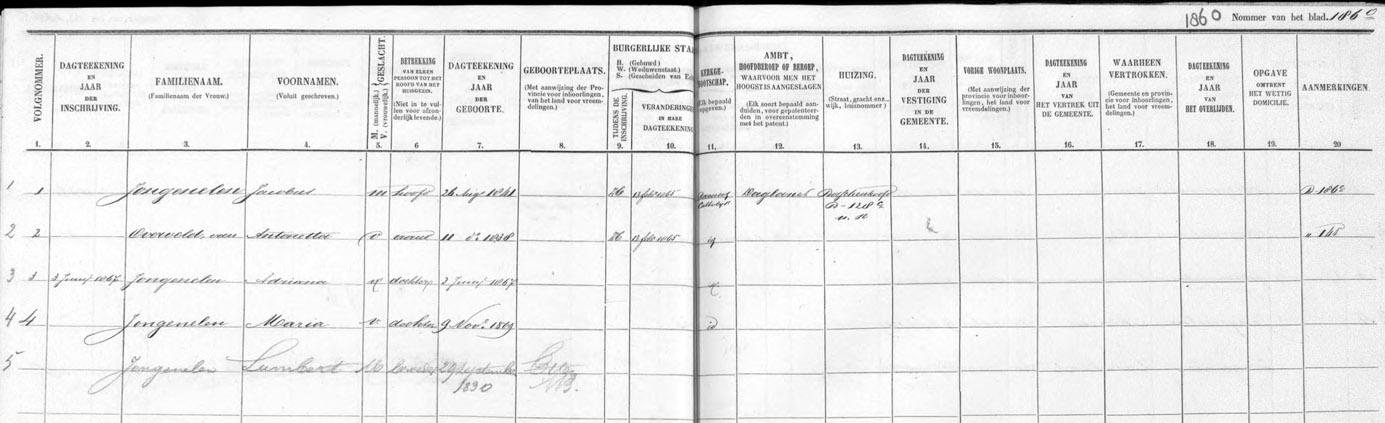 1860 Nommer van het blad. 1860
VOLGNOMMER.
DAGTEEKENING EN JAAR DER INSCHRIJVING.
FAMILIENAAM. (Familienaam der Vrouw.)
VOORNAMEN. (Voluit geschreven.)
GESLACHT. M. (mannelijk.) V. (vrouwelijk.)
BETREKKING VAN ELKEN PERSOON TOT HET HOOFD VAN HET HUISGEZIN. (Niet in te vullen voor afzonderlijk levende.)
DAGTEEKENING EN JAAR DER GEBOORTE.
GEBOORTEPLAATS. (Met aanwijzing der Provincie voor inboorlingen, van het land voor vreemdelingen.)
BURGERLIJKE STA
H. (Gehuwd.)
W. (Weduwenstaat.)
S. (Gescheiden van Ech
TIJDENS DE INSCHRIJVING.
VERANDERING IN HARE DAGTEEKENING
KERKGENOOTSCHAP. (Elk bepaald opgeven.)
AMBT, HOOFDBEROEP OF BEROEP, WAARVOOR MEN HET HOOGST IS AANGESLAGEN (Elk soort bepaald aanduiden, voor gepatenteerden in overeenstemming met het patent.)
HUIZING. (Straat, gracht enz. wijk, huisnommer.)
DAGTEEKENING EN JAAR DER VESTIGING IN DE GEMEENTE.
VORIGE WOONPLAATS. (Met aanwijzing der provincie voor inboorlingen, het land voor vreemdelingen.)
DAGTEEKENING EN JAAR VAN HET VERTREK UIT DE GEMEENTE.
WAARHEEN VERTROKKEN. (Gemeente en provincie voor inboorlingen, het land voor vreemdelingen.)
DAGTEEKENING EN JAAR VAN HET OVERLIJDEN.
OPGAVE OMTRENT HET WETTIG DOMICILIE.
AANMERKINGEN.
1. 2. 3. 4. 5. 6 7. 8. 9. 10. 11. 12. 13. 14. 15. 16. 17. 18. 19. 20
1 1 Jongenelen Jacobus m hoofd 26 Aug 1841 13 feb 1865 Daglooner
2 2 Overveld, van Antonetta v vrouw 11 do 1838 13 feb 1865 id " 145
3 3 3 Junij 1867 Jongenelen Adriana v dochter 2 Junij 1867
4 4 Jongenelen Maria v dochter 9 Nov. 1869 id
5 Jongenelen Lambert M 29 september 1830